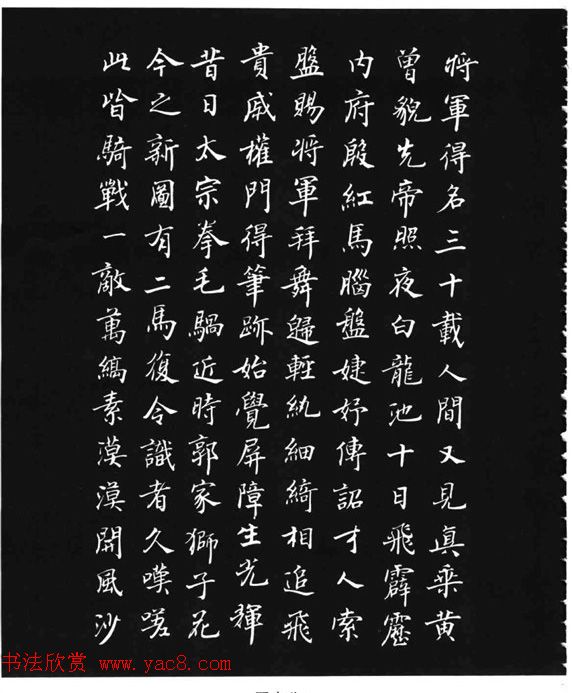 将軍得名三十載人間又見眞乗黄
曾貌先帝照夜白龍池十日飛霹靂
内府殷紅馬腦盤婕妤傳詔才人索
盤賜将軍拜舞歸輕紈細綺相追飛
貴戚權門得筆跡始覺屏障生光輝
昔日太宗拳毛騧近時郭家獅子花
今之新圖有二馬復令識者久嘆嗟
此皆騎戰一敵萬縞素漠漠開風沙
书法欣赏 www.yac8.com